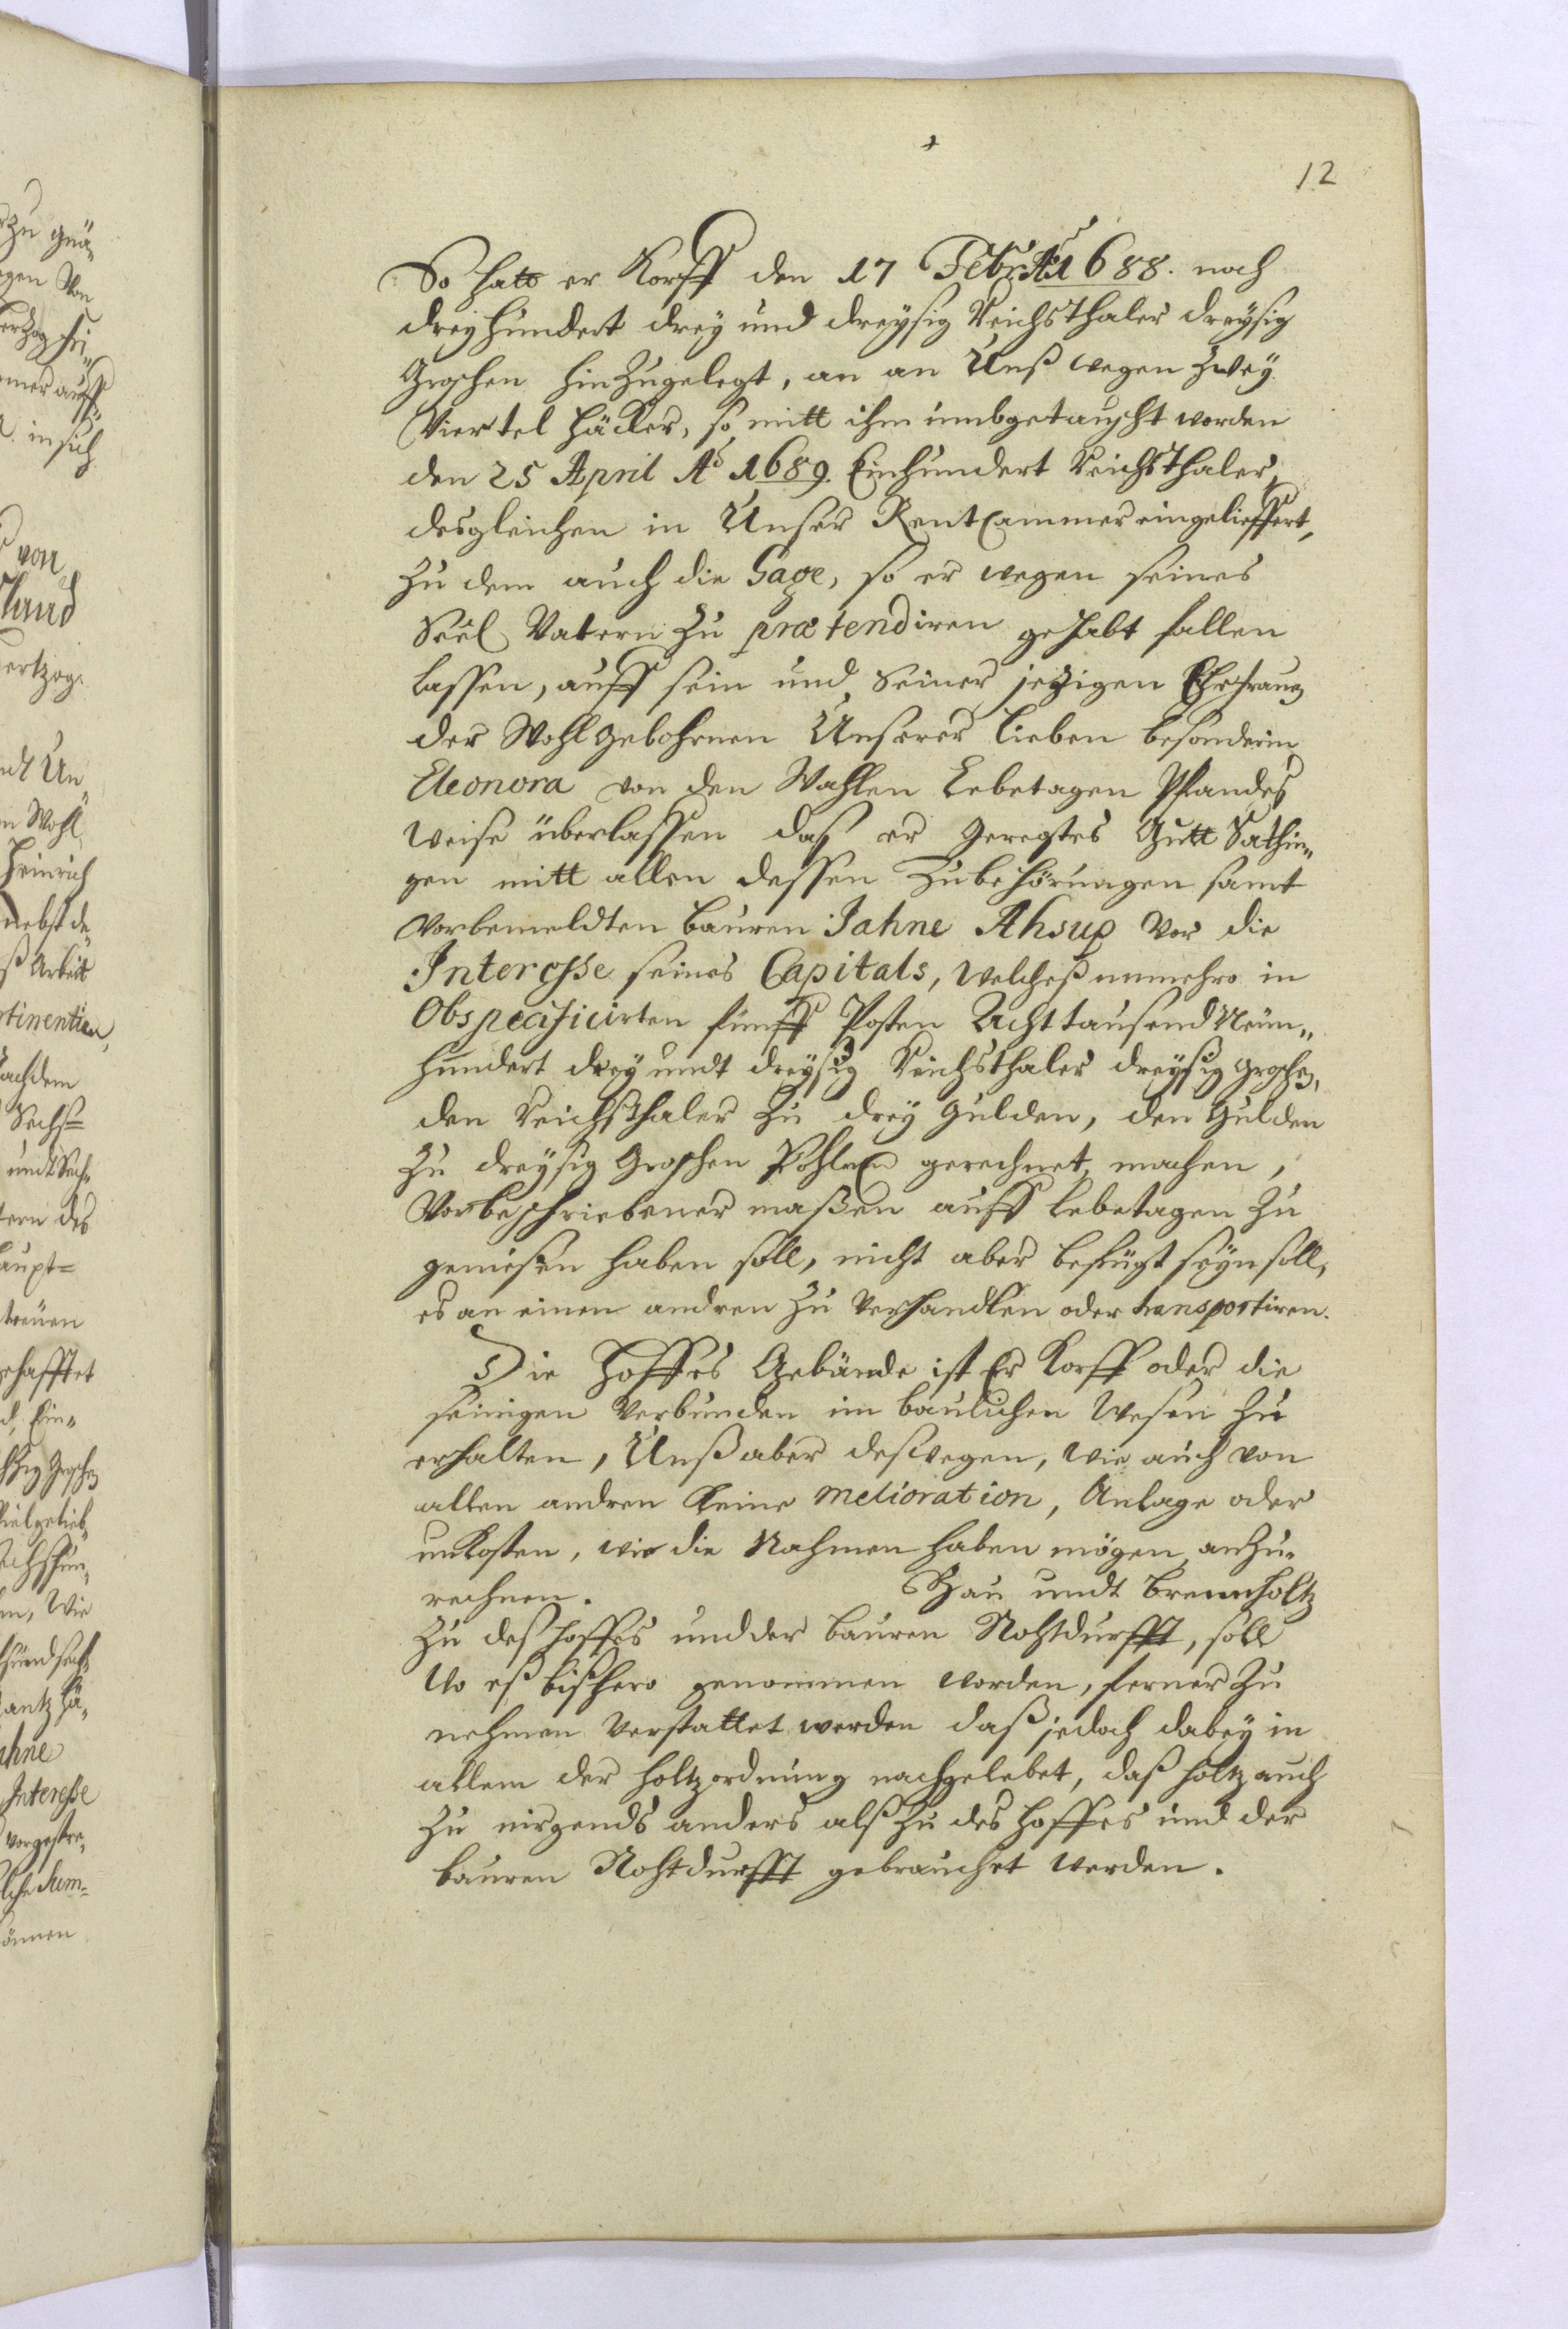 12
So hatt er Korff den 17 Febr: Aō 1688. noch
dreyhundert drey und dreysig Reichsthaler dreysig
Groschen hinzugelegt, an an Unß wegen zwey
Viertel Häcker, so mitt ihm umbgetauscht worden
den 25 April Aō 1689. Einhundert Reichsthaler,
desgleichen in Unser RentCammer eingelieffert,
zu dem auch die Gage, so er wegen seines
Seel Vatern zu prætendiren gehabt fallen
lassen, auff sein und seiner jetzigen Ehefrauen
der Wohlgebohrnen Unserer lieben besonderin,
Eleonora von den Wahlen Lebetagen Pfandes
weise überlassen daß er geregtes Gutt Sathin„
gen mitt allen dessen Zubehörungen samt
vorbemeldten bauren Jahne Ahsup vor die
Interesse seines Capitals, welcheß nunmehro in
Obspecificirten fünff Posten Achttausend Neun„
hundert drey undt dreysig Reichsthaler dreysig groschen,
den Reichsthaler zu drey Gulden, den Gulden
zu dreysig Groschen Pohlen gerechnet, machen,
Vorbeschriebener maßen auff lebetagen zu
geniesen haben soll, nicht aber befugt seyn soll,
es an einen andren zu verhandlen oder transportiren.
Die Hoffes Gebäude ist Er Korff oder die
seinigen verbunden im baulichen Wesen zu
erhalten, Unß aber deswegen, wie auch von
allen andren keine melioration, Anlage oder
unkosten, wie die Nahmen haben mögen, anzu„
rechnen. Bau undt brennholtz
zu deß hoffes und der bauren Nohtdurfft, soll
wo eß bißhero genommen worden, ferner zu
nehmen verstattet werden daß jedoch dabey in
allem der holtzordnung nachgelebet, daß holtz auch
zu nirgends anders alß zu des hoffes und der
bauren Nohtdurfft gebrauchet werden.